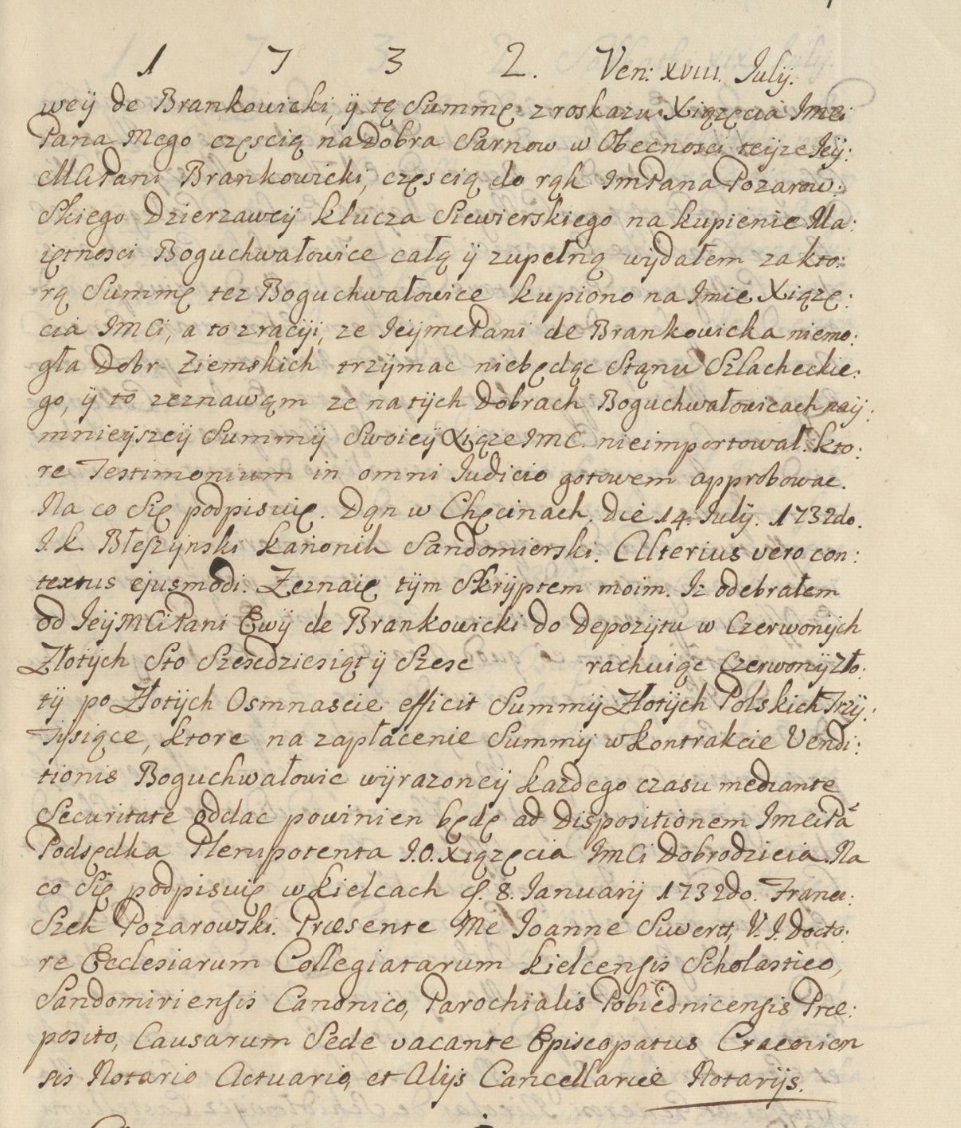 1 7 3 2. Ven: XVIII. Julij.
weÿ de Brankowicki, ÿ tę Summę z roskazu Xiązęcia Jmći
Pana Mego częscią na Dobra Sarnow w Obecnosci teÿze Jeÿ:
MCiPani Brankowicki, częscią do rąk JmPana Pozarow:
Skiego Dzierzawcÿ klucza Siewierskiego na kupienie Ma:
iętnosci Boguchwałowice całą ÿ zupełną wÿdałem za kto:
rą Summę tez Boguchwałowice kupiono na Jmie Xiązę:
cia JMCi, a to z raciÿ, ze JeÿmćPani de Brankowicka niemo:
gła Dobr Ziemskich trzÿmac niebędąc Stanu Szlacheckie:
go, ÿ to zeznawam ze na tÿch Dobrach Boguchwałowicach naÿ:
mnieÿszeÿ Summÿ Swoieÿ Xiąze JMC. nieimportował. kto:
re Testimonium in omni Judicio gotowem approbowac.
Na co Się podpisuię. Dan w Chęcinach. Die 14. Julÿ. 1732do.
J. K. Błeszÿnski Kanonik Sandomierski. Alterius vero con:
textus ejusmodi. Zeznaię tÿm Skrÿptem moim. Iz odebrałem
od JeÿMCiPani Ewÿ de Brankowicki do Depozÿtu w Czerwonÿch
Złotÿch Sto Szescdziesiąt ÿ Szesc rachuiąc CzerwonÿZło:
tÿ po Złotÿch Osmnascie efficit Summÿ Złotÿch Polskich Trzÿ:
Tÿsiące, ktore na zapłacenie Summÿ w kontrakcie Vendi:
tionis Boguchwałowic wÿrazoneÿ kazdego czasu mediante
Securitate oddac powinien będę ad Dispositionem JmciPa
Podsędka Plenipotenta J.O. Xiązęcia JmCi Dobrodzieia. Na
co Się podpisuię w kielcach d. 8. Januarÿ 1732do. Franci:
Szek Pozarowski. Præsente Me Joanne Suwert, V. J. Docto:
re Ecclesiarum Collegiatarum kielcensis Scholastico,
Sandomiriensis Canonico, Parochialis Pobiednicensis Præ:
posito, Causarum Sede vacante Episcopatus Cracovien
sis Notario Actuario, et Alÿs Cancellariæ Notarÿs.